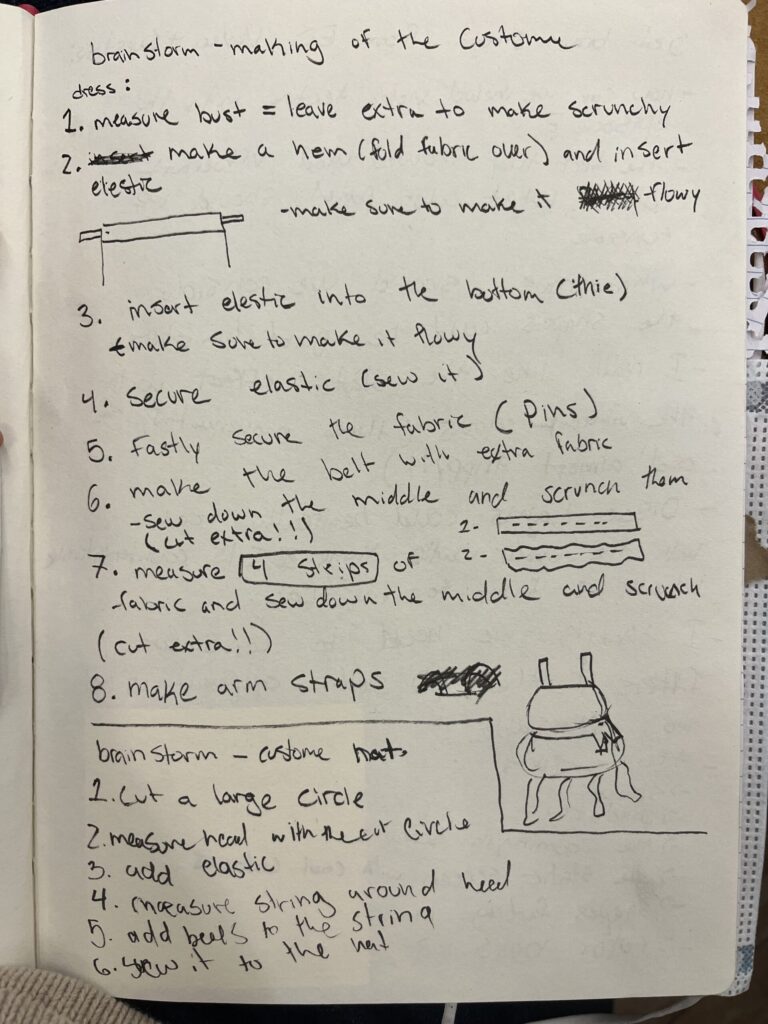 brainstorm - making of the Custome
dress:
1. measure bust = leave extra to make scrunchy
2. insert make a hem (fold fabric over) and insert
elestic
-make sure to make it flowy
3. insert elestic into the bottom (thie)
make sure to make it flowy
4. Secure elastic (sew it)
5. Fastly secure the fabric (pins)
6. make the belt with extra fabric
-sew down the middle and scrunch them
(cut extra!!)
2-
2-
7. measure 4 strips of
fabric and sew down the middle and scrunch
(cut extra!!)
8. make arm straps
brainstorm - custome hat
1. cut a large circle
2. measure head with the cut circle
3. add elastic
4. measure string around head
5. add beels to the string
6. sew it to the hat